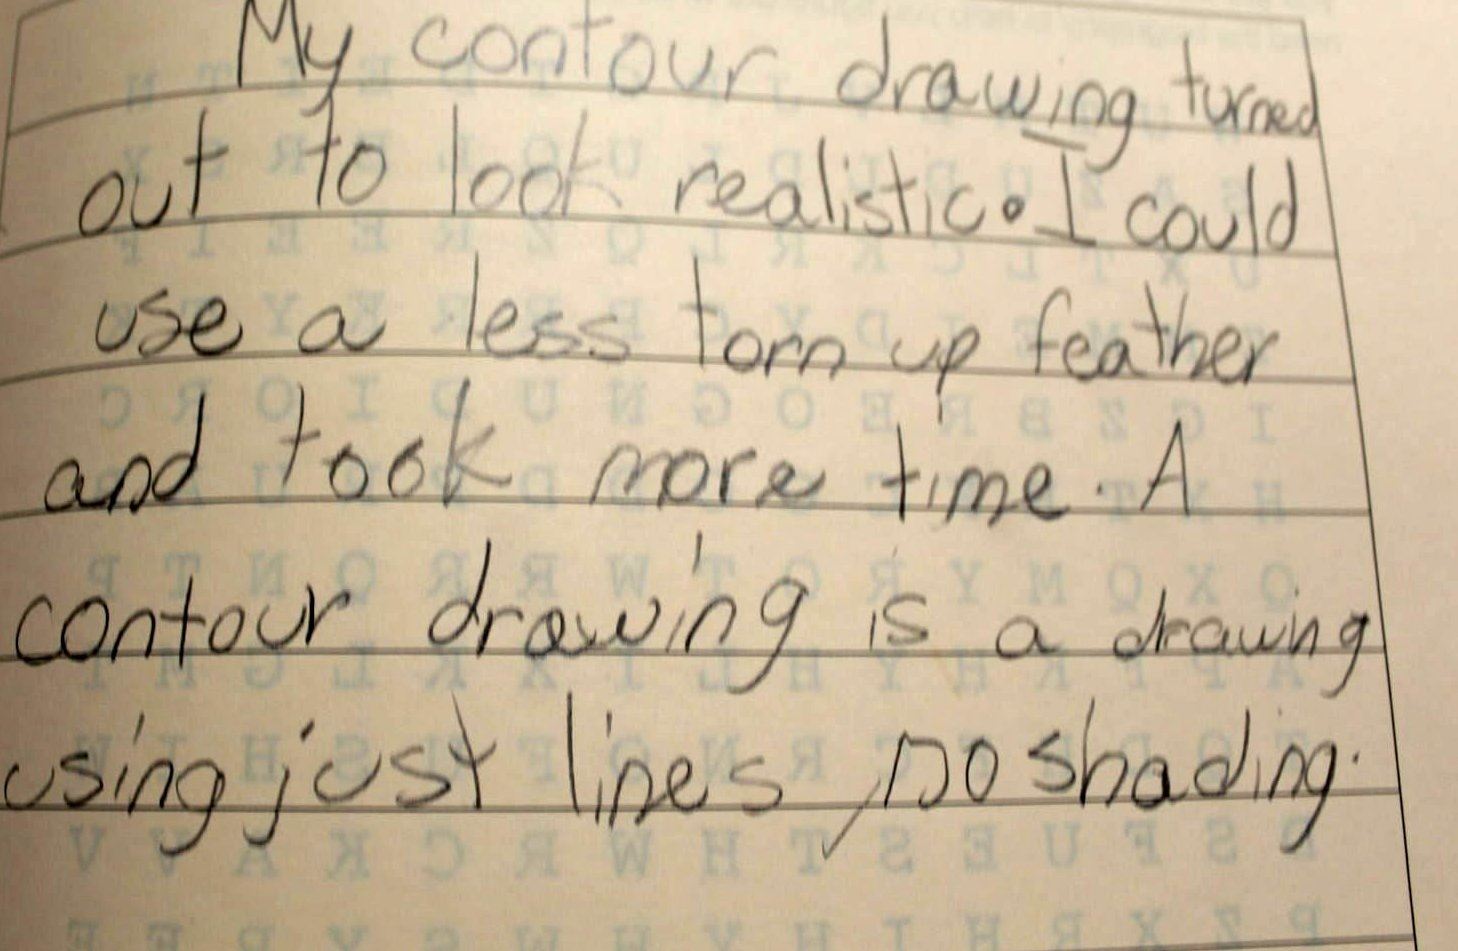 My contour drawing turned
out to look realistic. I could
use a less torn up feather
and took more time. A
contour drawing is a drawing
using just lines, no shading.